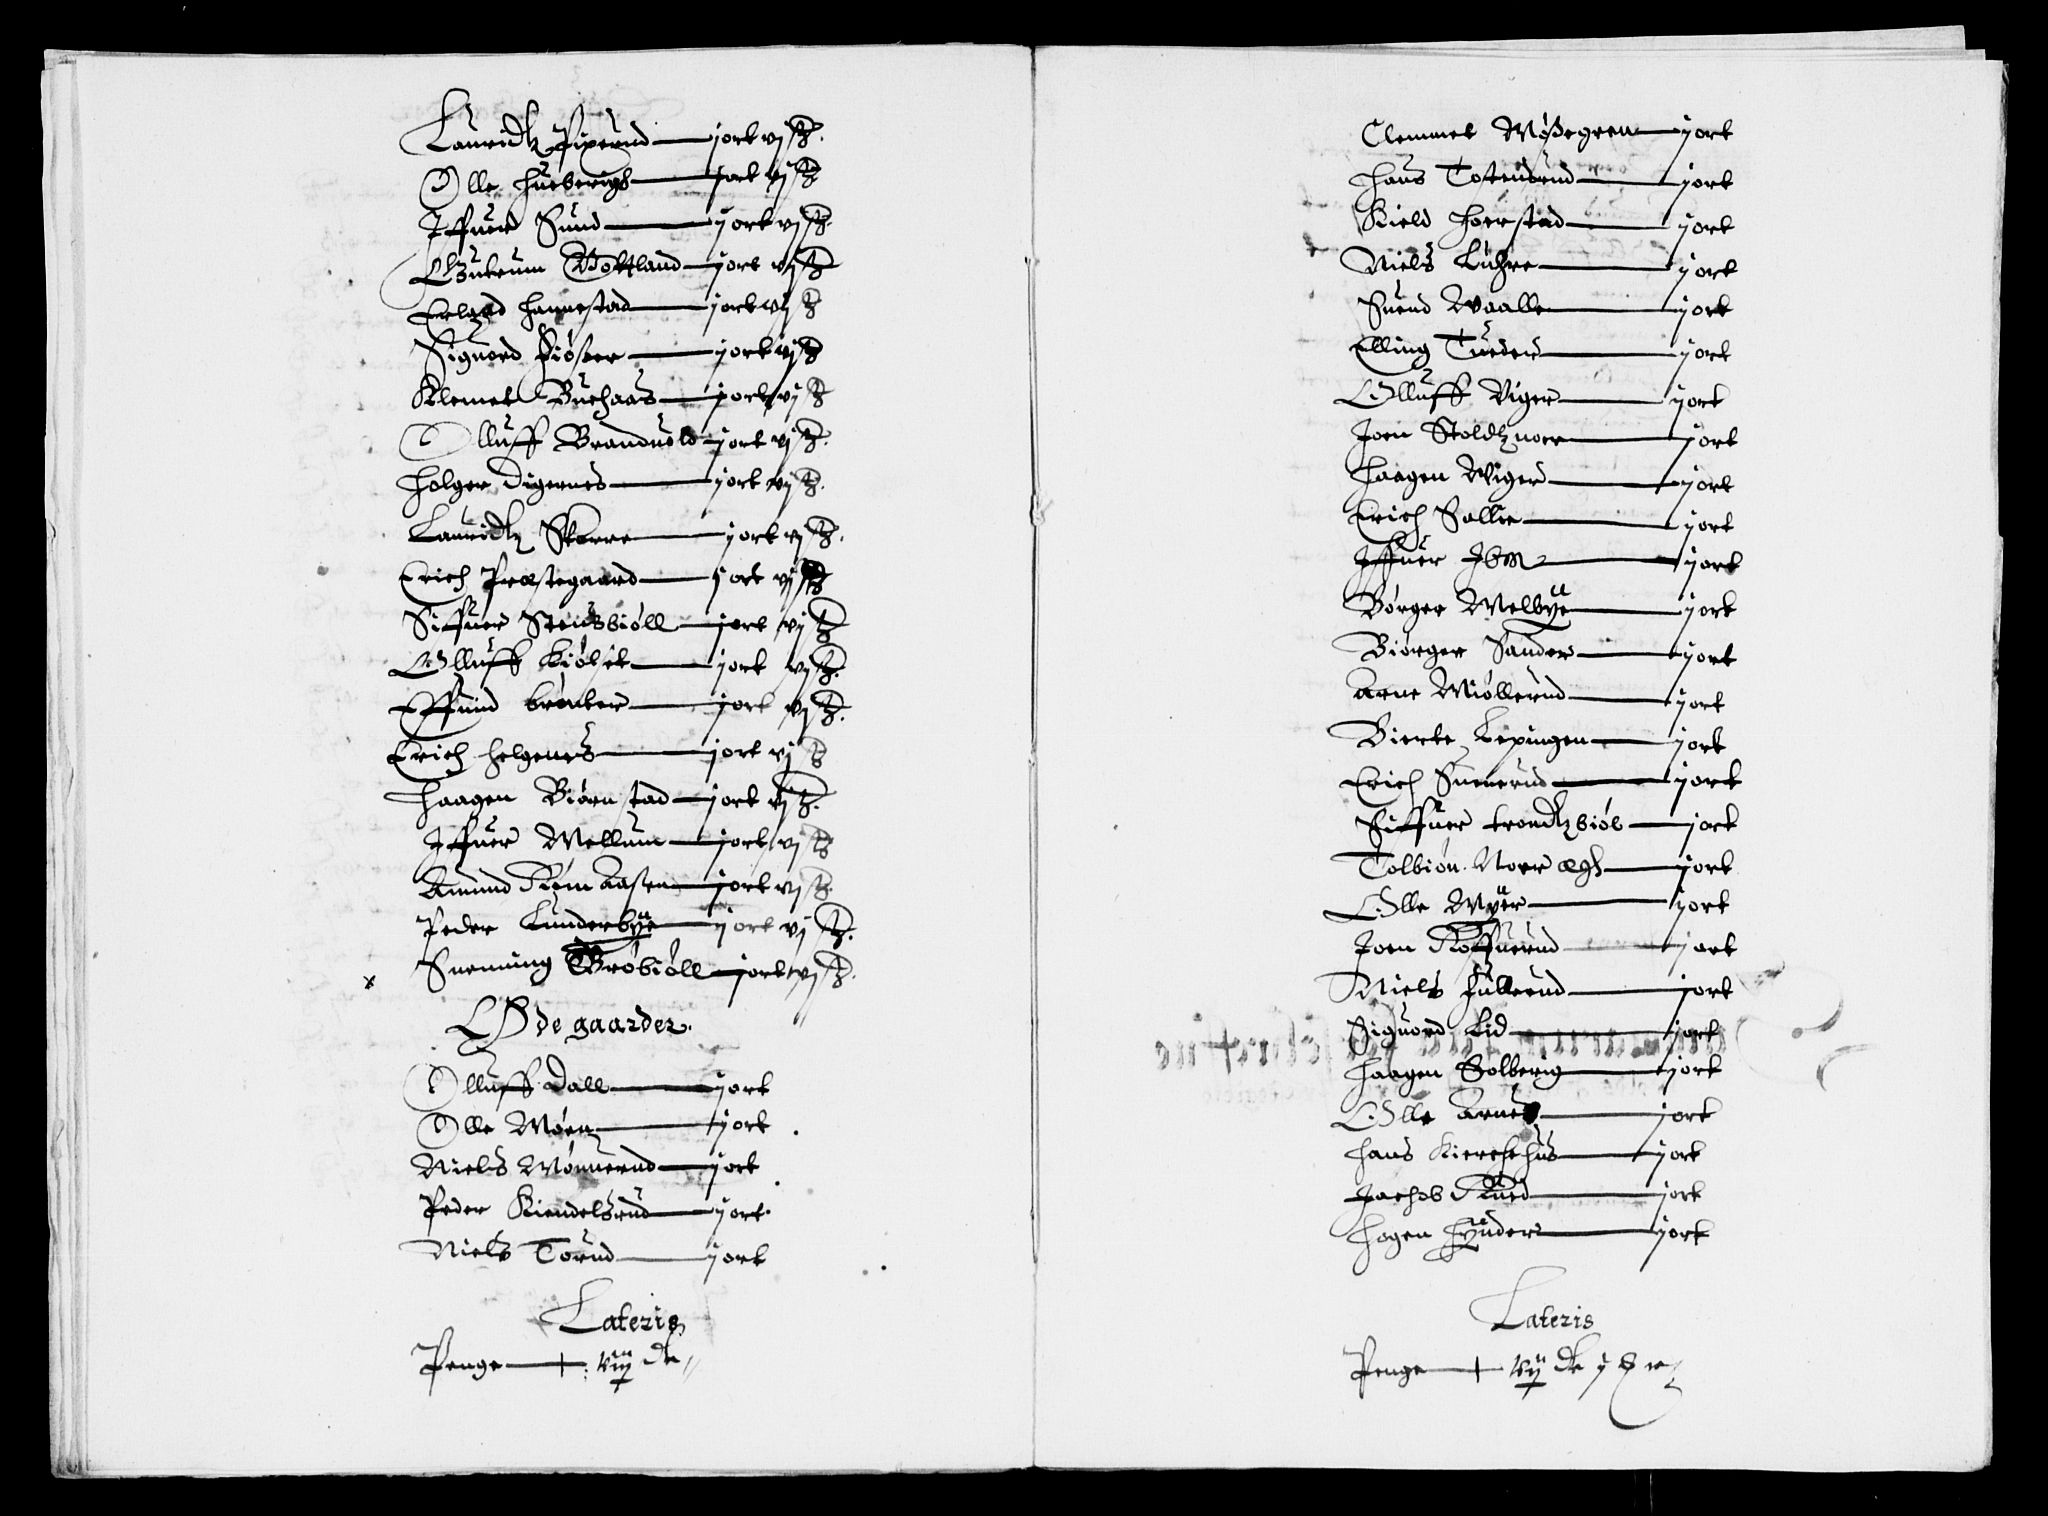 Lauridtz Piperud — j ort vj ß.
Olle Hueberigh — j ort vj ß
Iffuer Sund — j ort vj ß.
Gottland — j ort vj ß
Erland Hannestad — j ort vj ß
Siguord Fiøser — j ort vj ß
Klemet Buehaas — j ort vj ß
Olluff Branduold — j ort vj ß.
Holger Digernes — j ort vj ß.
Lauridtz Skorre — j ort vj ß.
Erich Præstegaard — j ort vj ß
Siffuer Stensbiöll — j ort vj ß
Olluff Kiölset — j ort vj ß.
Effuind brenter — j ort vj ß.
Erich Helgenes — j ort vj ß
Haagen Biørnstad — j ort vj ß.
Iffuer Mellum — j ort vj ß
Amund Aasen — j ort vj ß.
Peder Lunderbÿe — j ort vj ß.
x Suenning Brøbiöll — j ort vj ß.
Øde gaarder.
Olluff Dall — j ort
Olle Moen — j ort
Niels Mönnerud — j ort
Peder Kiendelsrud — j ort
Niels Torud — j ort
Lateris
Penge — viij dr
Clemmet Moßegreen — j ort
Hans Tostensrud — j ort
Kield Hoerstad — j ort
Niels Luhre — j ort
Suend Waalle — j ort
Elling Tueder — j ort
Olluff Viger — j ort
Joen Stoldtznoer — j ort
Haagen Wiger — j ort
Erich Sollie — j ort
Iffuer — j ort
Börger Melbÿe — j ort
Biörger Sander — j ort
Arne Miöllerud — j ort
Bierte Lepingen — j ort
Erich Suenerud — j ort
Siffuer trondtzbiöl — j ort
Tolbiön Noer — j ort
Olle Mÿer — j ort
Joen Roffuerud — j ort
Niels Fullerud — j ort
Siguord Lid — j ort
Haagen Solberig — j ort
Olle Arnes — j ort
Hans Kierchehus — j ort
Jachob Rued — j ort
Hagen Hÿnder — j ort
Lateris
Penge — vij dr j ort